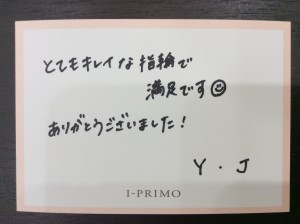 とてもキレイな指輪で
満足です☺
ありがとうございました!
Y.J
I-PRIMO